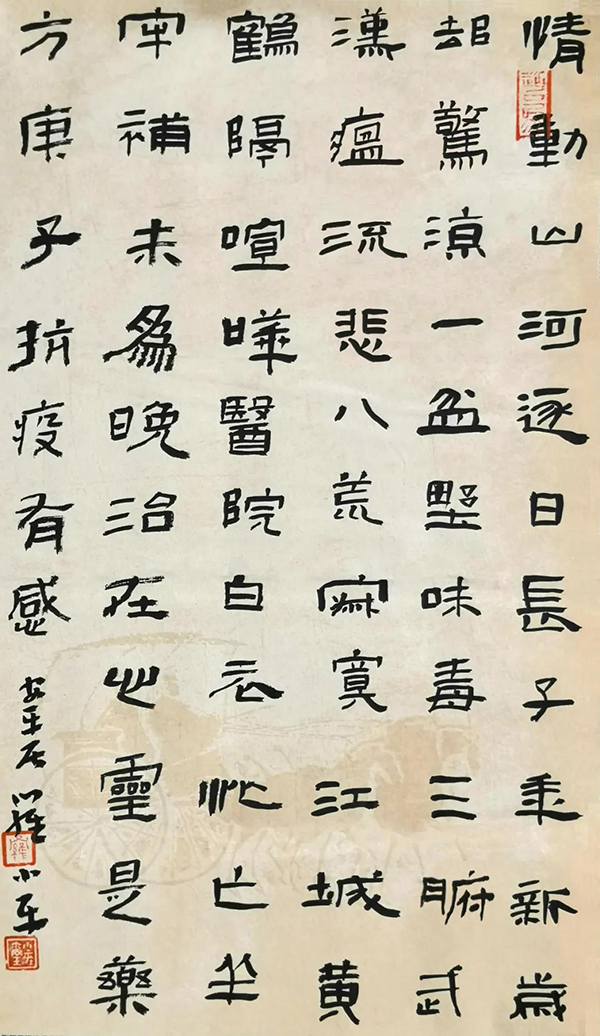 情動山河逐日長子年新歲
却驚涼一盆野味毒三腑武
漢瘟流悲八荒寂寞江城黃
鶴隔喧嘩醫院白衣忙亡羊
牢補未爲晚治在心靈是藥
方庚子抗疫有感